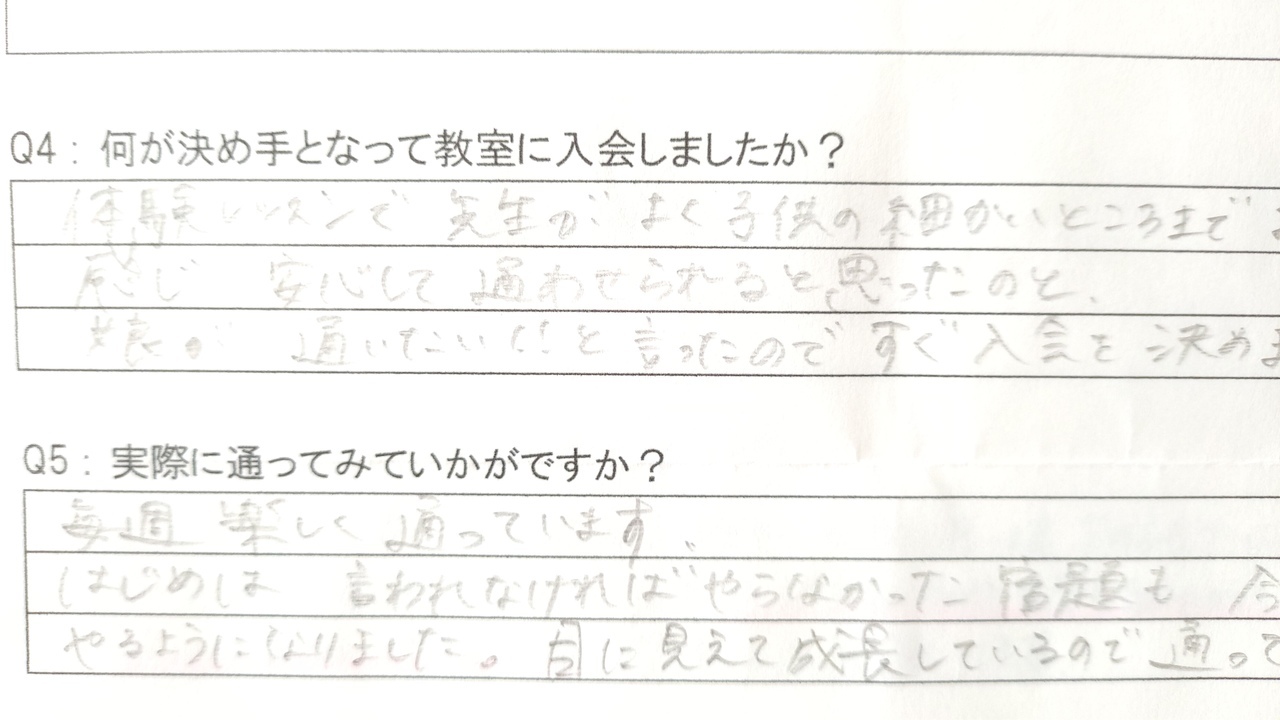 Q4：何が決め手となって教室に入会しましたか？
体験レッスンで 先生が よく子供の細かいところまで
感じ 安心して 通わせられると思ったのと、
娘が 通いたい!!と 言ったので すぐ入会を決めま
Q5：実際に通ってみていかがですか？
毎週 楽しく 通っています、
はじめは 言われなければ やらなかった 宿題も 今
やるようになりました。 目に見えて成長しているので 通って